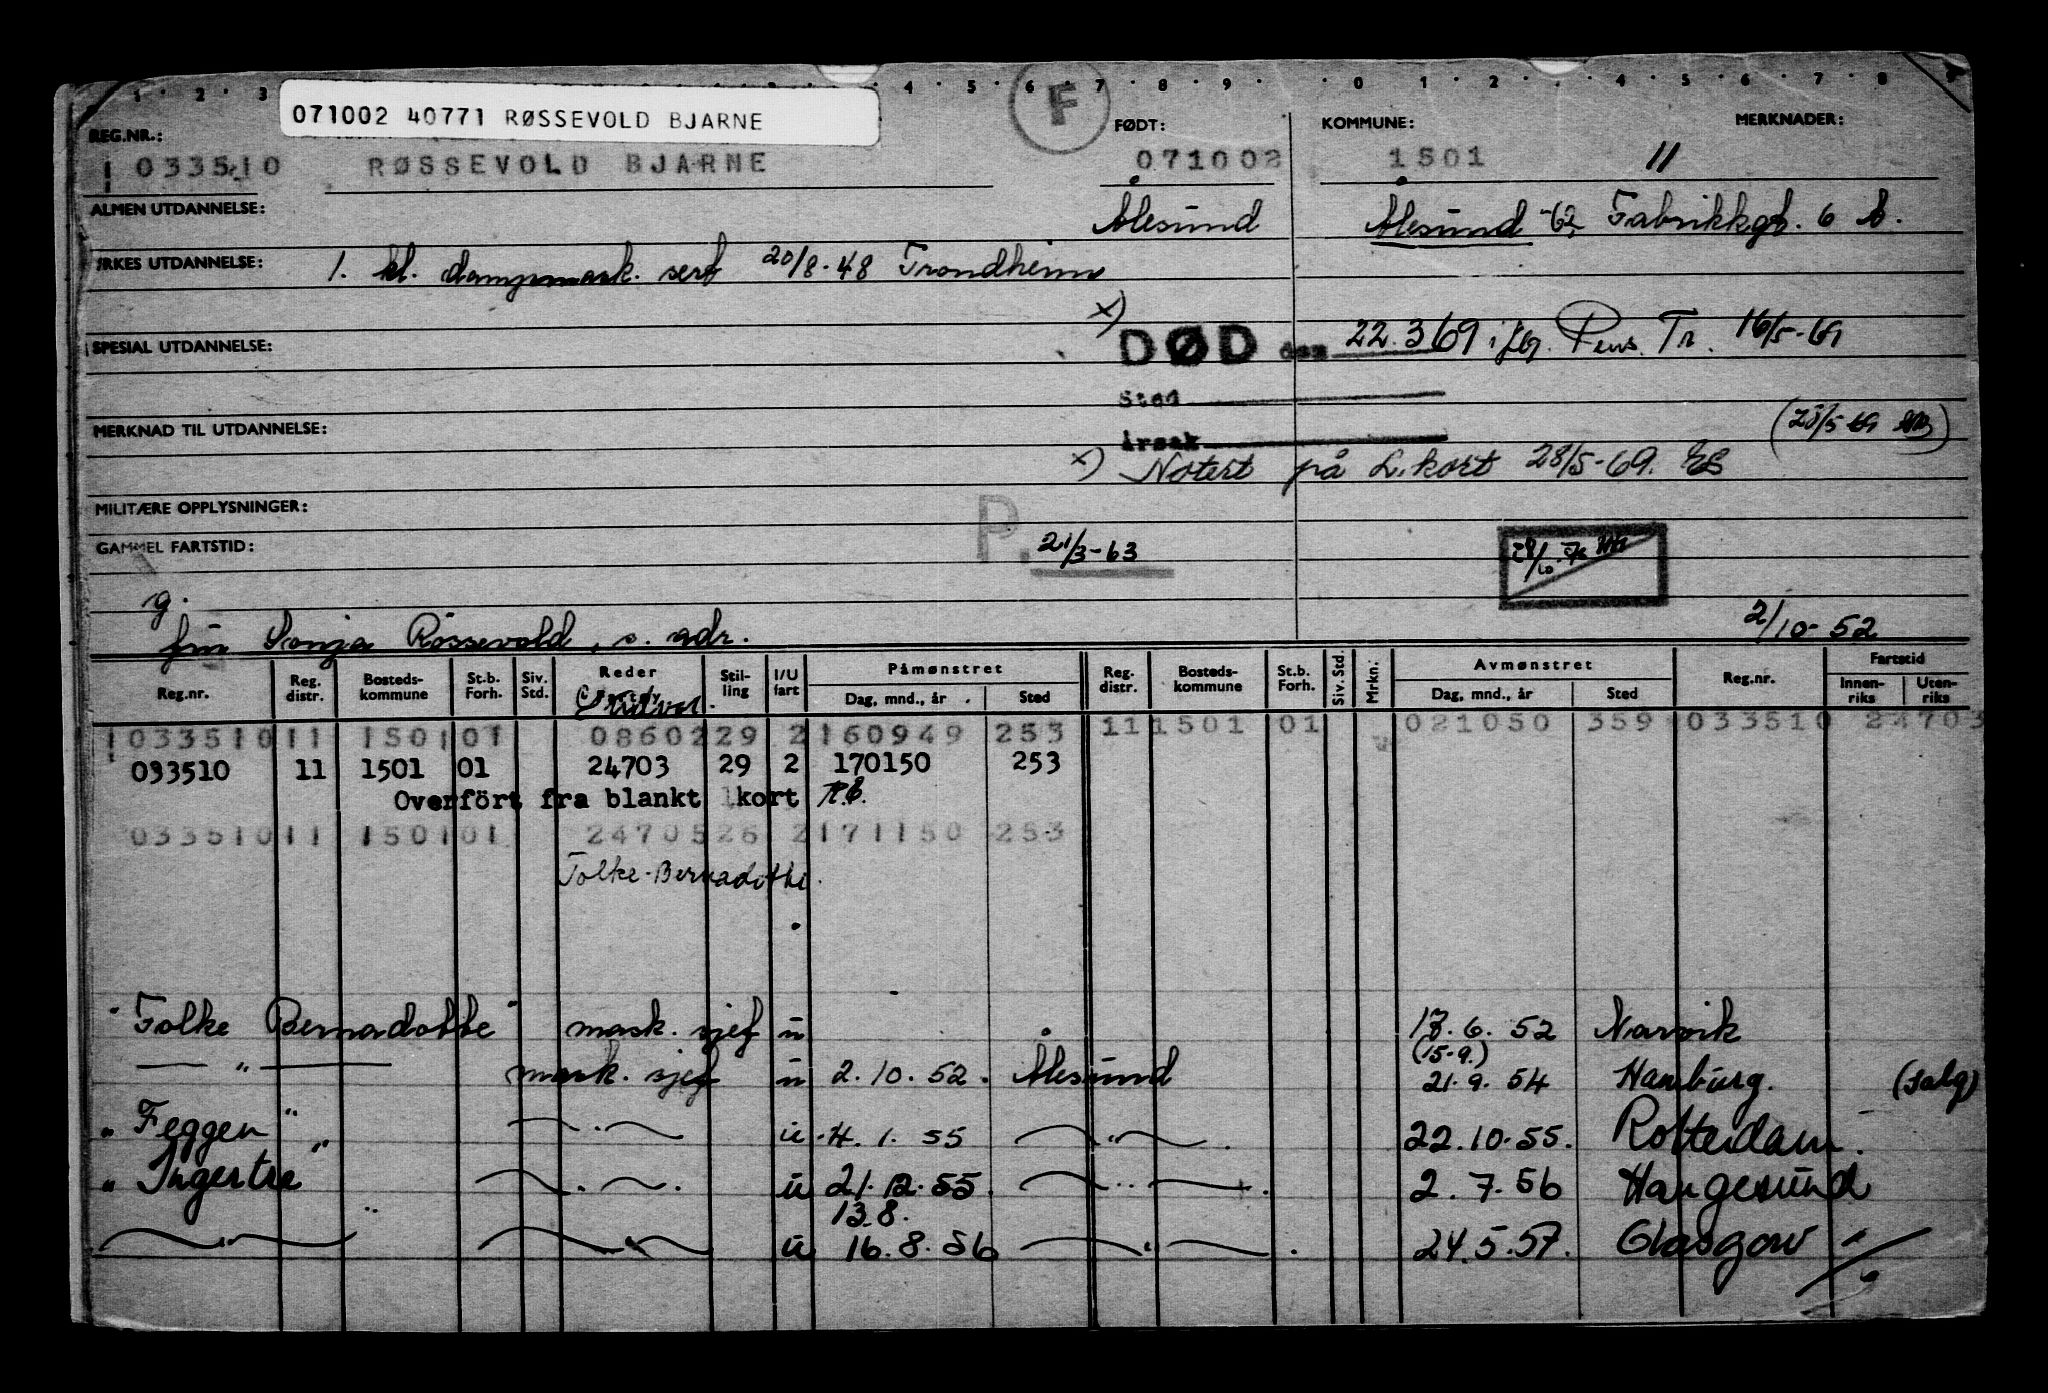 1 2 3 4 5 6 7 8 9 0 1 2 4 5 6 7 8 9
071002 40771 RØSSEVOLD BJARNE
F
REG.NR.: FØDT: KOMMUNE: MERKNADER:
1033510 RØSSEVOLD BJARNE 071002 1501 11
ALMEN UTDANNELSE: Ålesund Ålesund -62 Fabrikkgt. 6 b.
YRKES UTDANNELSE: 1. kl. dampmask. sert 20/8-48 Trondheim
x)
SPESIAL UTDANNELSE: DØD den 22.3 69 iflg. Pens. Tr. 16/5-69
Sted
MERKNAD TIL UTDANNELSE: årsak (23/5-69)
x) Notert på L.kort 28/5-69. ES
MILITÆRE OPPLYSNINGER:
GAMMEL FARTSTID: P. 21/3-63
g.
fru Sonja Røssevold, s. adr. 2/10-52
Reg.nr. Reg. distr. Bosteds-kommune St.b. Forh. Siv. Std. Reder Stil-ling I/U fart Påmønstret Dag, mnd., år Sted Reg. distr. Bosteds-kommune St.b. Forh. Siv. Std. Mrkn: Avmønstret Dag, mnd., år Sted Reg.nr. Fartstid Innen-riks Uten-riks
1033510 11 1501 01 08602 29 2 160949 253 11 1501 01 021050 359 033510 24703
033510 11 1501 01 24703 29 2 170150 253
Overført fra blankt kort
033510 11 1501 01 24705 26 2 171150 253
Folke-Bernadotte.
"Folke Bernadotte" mask. sjef u 18.6.52 Narvik
(15.9.)
— " — mask. sjef u 2.10.52. Ålesund 21.9.54 Hamburg. (salg)
"Feggen" — " — u 4.1.55 — " — 22.10.55. Rotterdam.
"Ingertre" — " — u 21.12.55. — " — 2.7.56 Haugesund
13.8.
— " — — " — u 16.8.56 — " — 24.5.57. Glasgow